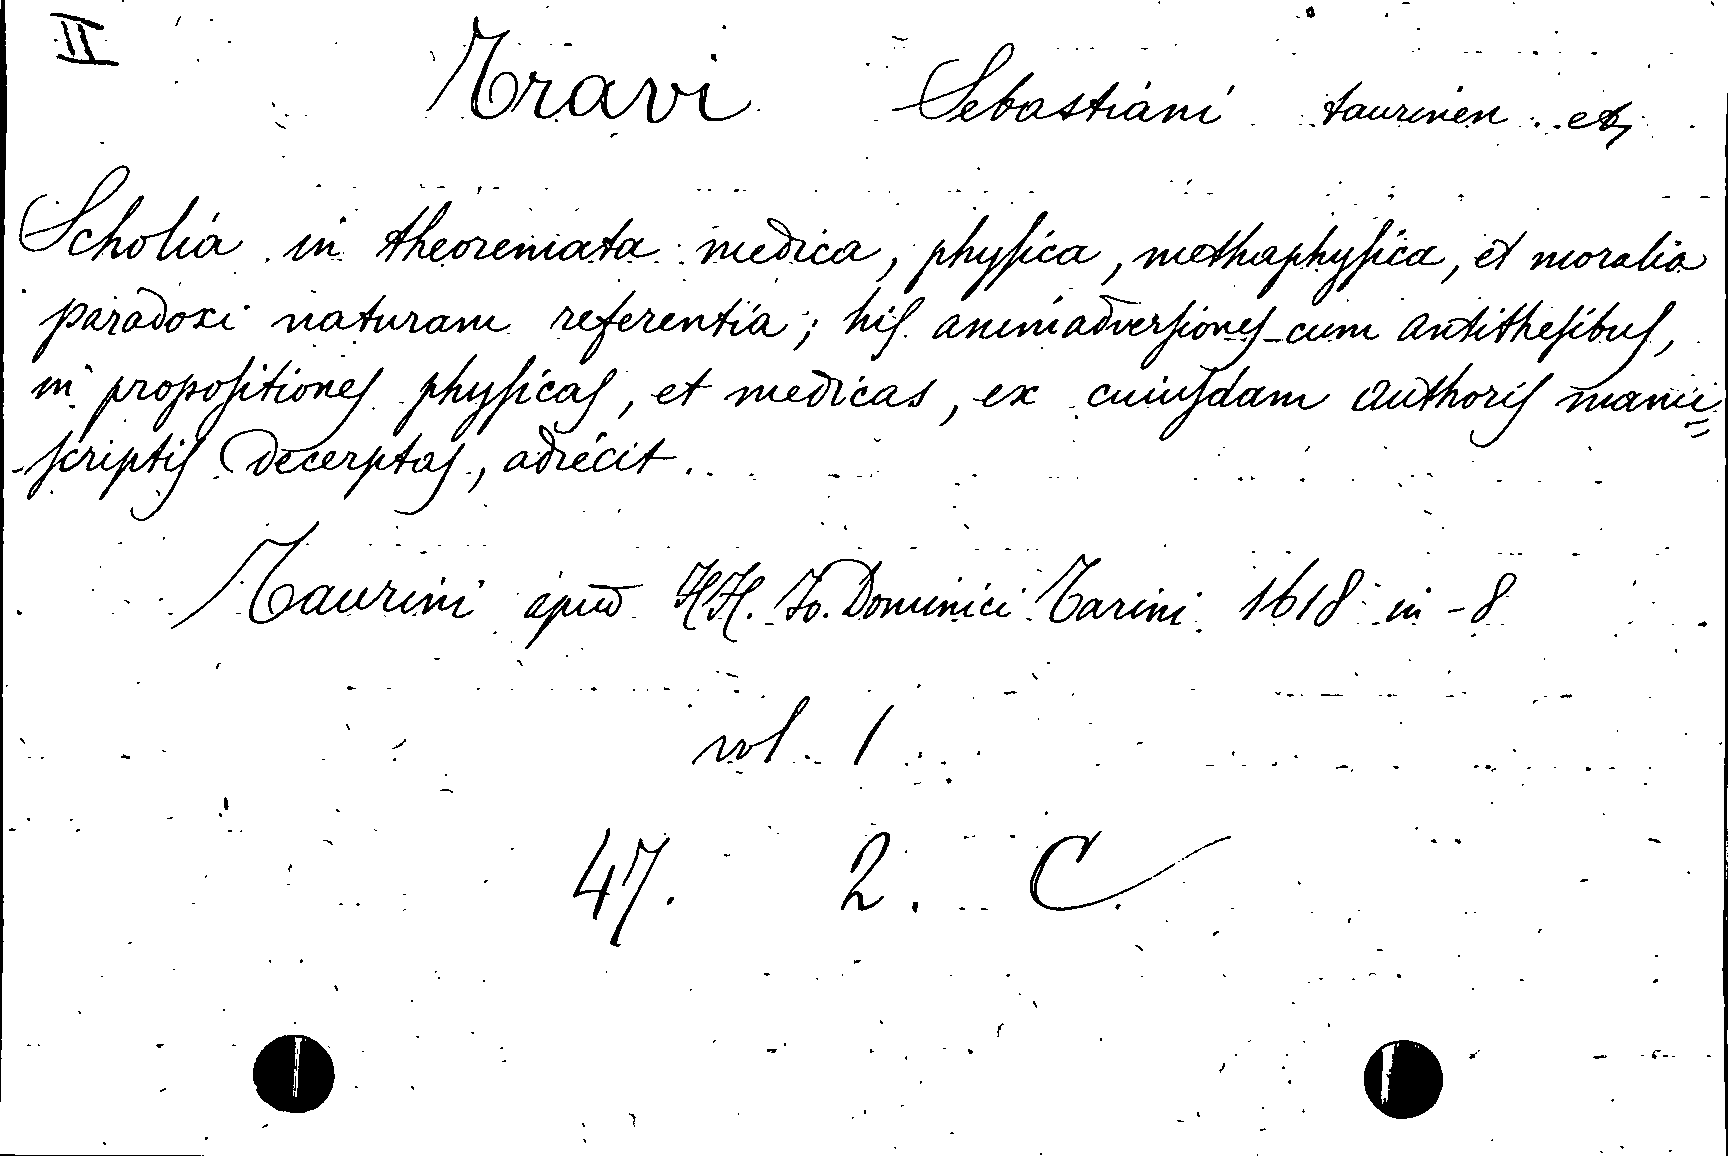 II
Travi Sebastiani taurinen. etc
Scholia in theoremata medica, physica, methaphysica, et moralia
paradoxi naturam referentia; his animadversiones cum antithesibus,
in propositiones physicas, et medicas, ex cuiusdam authoris manu=
scriptis decerptas, adiecit.
Taurini apud HH. Jo. Dominici Tarini 1618 in-8
vol. 1
47. 2. C